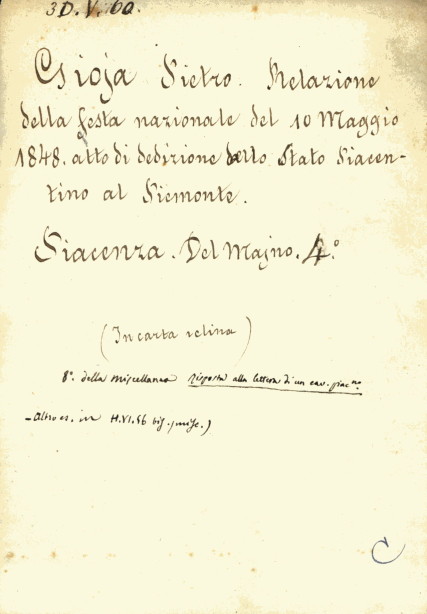 3D.V.60.
Gioja Pietro. Relazione
della festa nazionale del 10 Maggio
1848. atto di dedizione dello Stato Piacen-
tino al Piemonte.
Piacenza. Del Majno. 4.°
(In carta velina)
8°. della miscellanea risposta alla lettera di un cav. piac.no
- Altro es. in H.VI.56 bis. misc.)
C